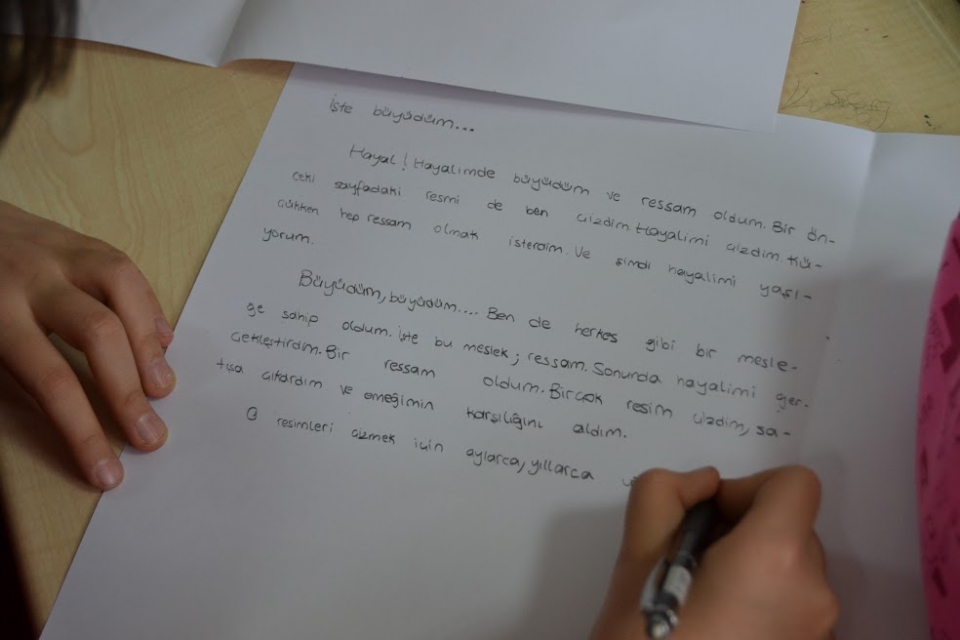 İşte büyüdüm...
Hayal! Hayalimde büyüdüm ve ressam oldum. Bir ön-
ceki sayfadaki resmi de ben çizdim. Hayalimi çizdim. Kü-
çükken hep ressam olmak isterdim. Ve şimdi hayalimi yaşı-
yorum.
Büyüdüm, büyüdüm.... Ben de herkes gibi bir mesle-
ğe sahip oldum. İşte bu meslek; ressam. Sonunda hayalimi ger-
çekleştirdim. Bir ressam oldum. Birçok resim çizdim, sa-
tışa çıkardım ve emeğimin karşılığını aldım.
O resimleri çizmek için aylarca, yıllarca